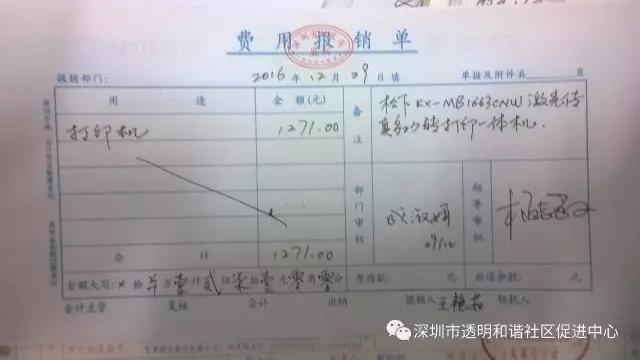 费用报销单
报销部门: 2016年12月29日填 单据及附件共 页
用途 金额(元) 备注 松下KX-MB1663CNW激光传
打印机 1271.00 真多功能打印一体机.
部门审核 领导审批
29/12
合计 1271.00
金额大写: × 拾 万 壹 仟 贰 佰 柒 拾 壹 元 零 角 零 分 原借款: 元 应退余款: 元
会计主管 复核 会计 出纳 报销人 领款人
深圳市透明和谐社区促进中心